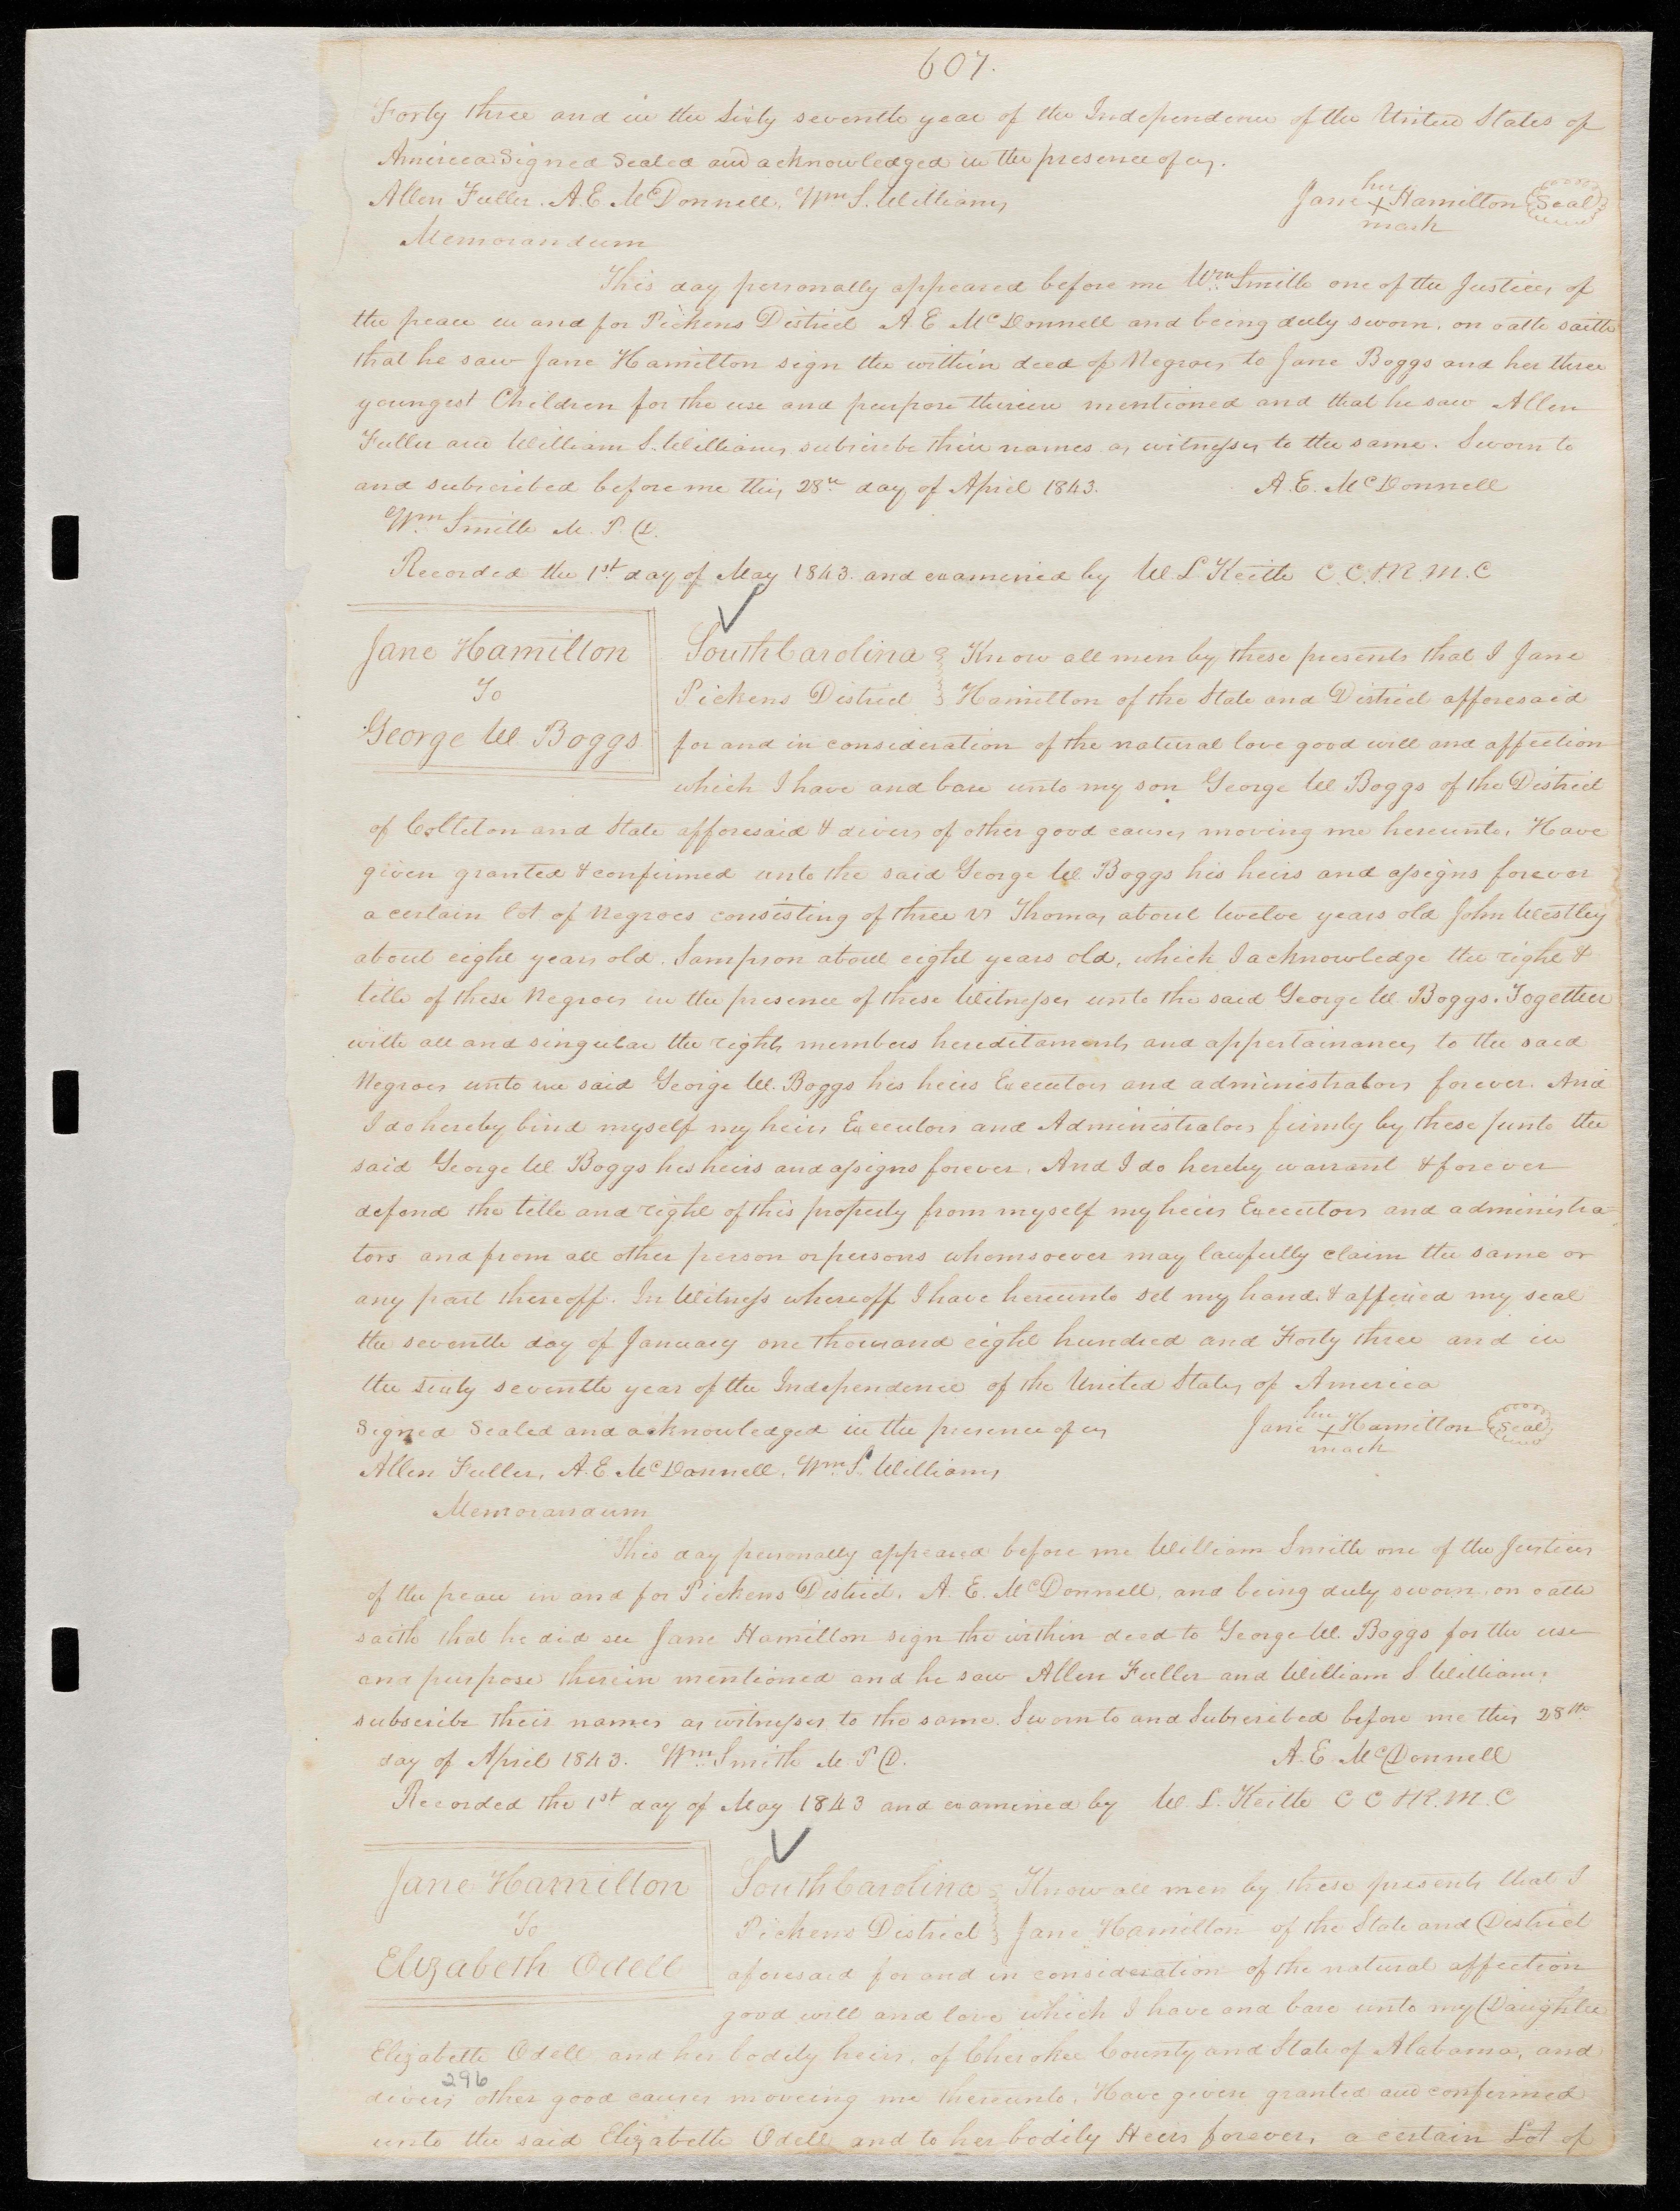 607.
Forty three and in the Sixty seventh year of the Independence of the United States of
America Signed Sealed and acknowledged in the presence of us.
Allen Fuller. A. E. McDonnell. Wm S. Williams
her
Jane X Hamilton Seal
mark
Memorandum
This day personally appeared before me Wm Smith one of the Justices of
the peace in and for Pickens District A. E McDonnell and being duly sworn. on oath saith
that he saw Jane Hamilton sign the within deed of Negroes to Jane Boggs and her three
youngest Children for the use and purpose therein mentioned and that he saw Allen
Fuller and William S. Williams subscribe their names as witnesses to the same. Sworn to
and subscribed before me this 28th day of April 1843. A. E. McDonnell
Wm Smith M. P. D.
Recorded the 1st day of May 1843. and examined by W. L Keith C. C. & R. M. C
Jane Hamilton
To
George W. Boggs
South Carolina Know all men by these presents that I Jane
Pickens District Hamilton of the State and District afforesaid
for and in consideration of the natural love good will and affection
which I have and bare unto my son George W Boggs of the District
of Colleton and State afforesaid & divers of other good causes moving me hereunto, Have
given granted & confirmed unto the said George W Boggs his heirs and assigns forever
a certain lot of Negroes consisting of three Vs Thomas about twelve years old John Westley
about eight years old. Sampson about eight years old, which I acknowledge the right &
title of these Negroes in the presence of these Witnesses unto the said George W Boggs. Together
with all and singular the rights members hereditaments and appertainances to the said
Negroes unto the said George W. Boggs his heirs Executors and administrators forever. And
I do hereby bind myself my heirs Executors and Administrators firmly by these unto the
said George W Boggs his heirs and assigns forever. And I do hereby warrant & forever
defend the title and right of this property from myself my heirs Executors and administra=
tors and from all other person or persons whomsoever may lawfully claim the same or
any part thereoff. In Witness whereoff I have hereunto set my hand. & affixed my seal
the seventh day of January one thousand eight hundred and Forty three and in
the sixty seventh year of the Independence of the United States of America
Signed Sealed and acknowledged in the presence of us
her
Jane X Hamilton Seal
mark
Allen Fuller, A. E McDonnell. Wm S. Williams
Memorandum
This day personally appeared before me William Smith one of the Justices
of the peace in and for Pickens District. A. E. McDonnell, and being duly sworn. on oath
saith that he did see Jane Hamilton sign the within deed to George W. Boggs for the use
and purpose therein mentioned and he saw Allen Fuller and William S Williams
subscribe their names as witnesses to the same. Sworn to and Subscribed before me this 28th
day of April 1843. Wm Smith M. P D. A. E McDonnell
Recorded the 1st day of May 1843 and examined by W. L. Keith C C & R. M. C
Jane Hamilton
To
Elizabeth Odell
South Carolina Know all men by these presents that I
Pickens District Jane Hamilton of the State and District
aforesaid for and in consideration of the natural affection
good will and love which I have and bare unto my Daughter
Elizabeth Odell and her bodily heirs, of Cherokee County and State of Alabama, and
296
divers other good causes moveing me thereunto. Have given granted and confirmed
unto the said Elizabeth Odell and to her bodily Heirs forever, a certain Lot of